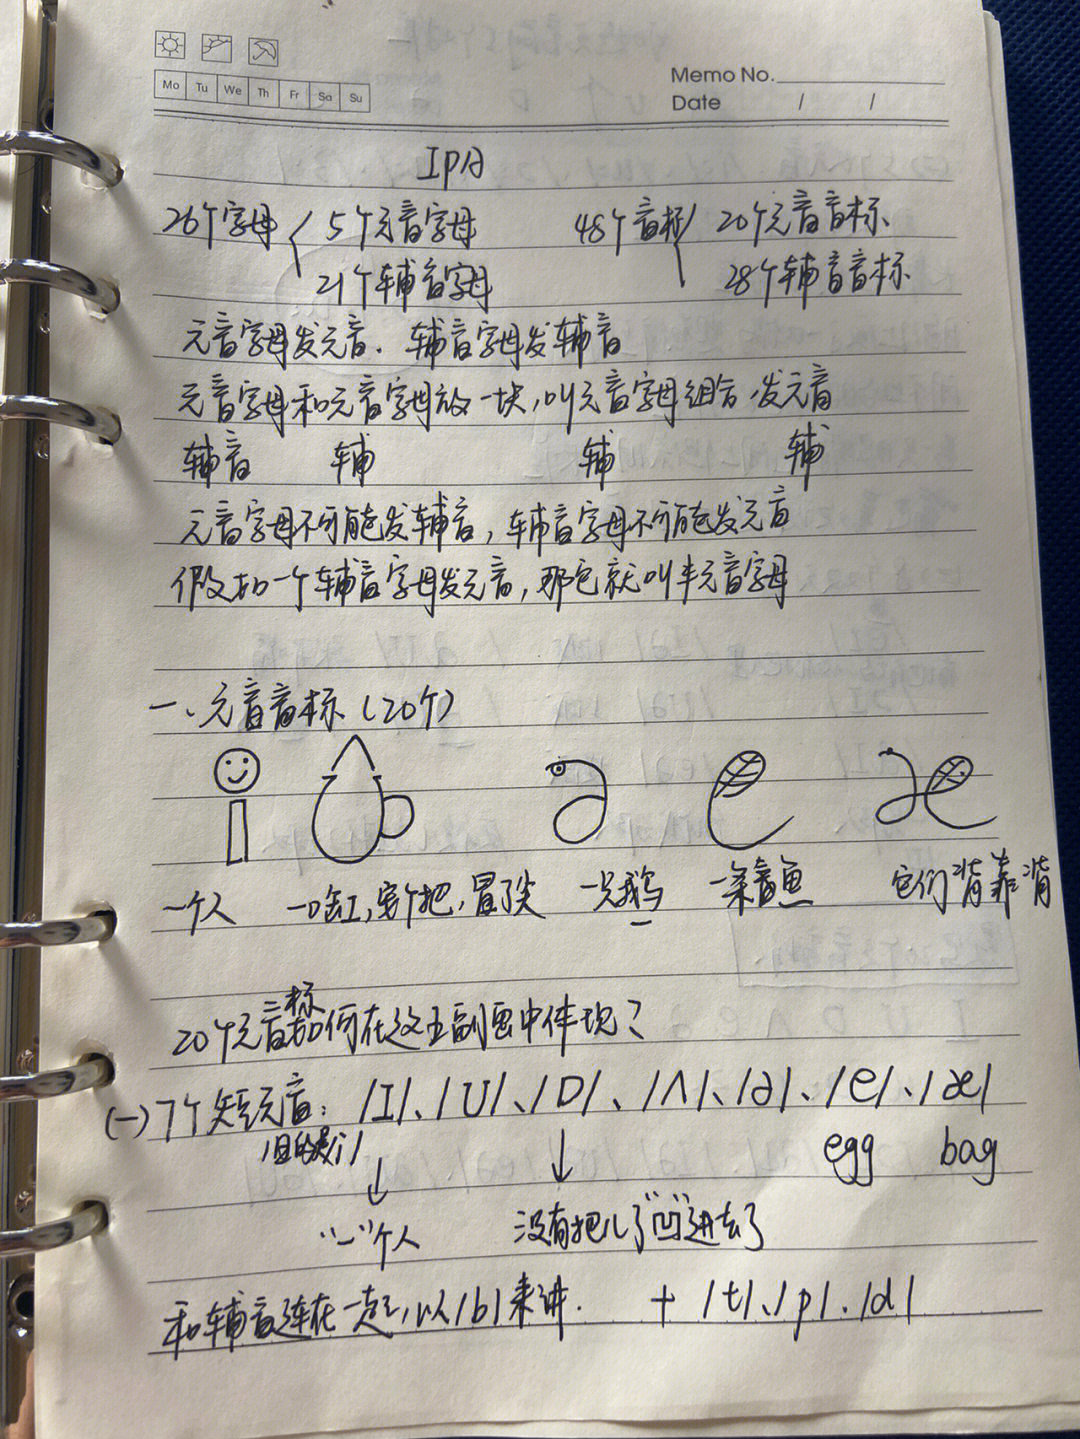 Memo No.
Mo Tu We Th Fr Sa Su
Date / /
IPA
26个字母 5个元音字母 48个音标 20个元音音标
21个辅音字母 28个辅音音标
元音字母发元音. 辅音字母发辅音
元音字母和元音字母放一块,叫元音字母组合,发元音
辅音 辅 辅 辅
元音字母不可能发辅音,辅音字母不可能发元音
假如一个辅音字母发元音,那它就叫半元音字母
一、元音音标(20个)
一个人 一口缸,穿个把,冒了尖 一只鹅 一条章鱼 它们背靠背
20个元音音标如何在这五副画中体现?
(一)7个短元音: /I/、/U/、/D/、/Λ/、/ə/、/e/、/æ/
egg bag
"一"个人 没有把儿了"凹"进去了
和辅音连在一起,以/b/来讲. + /t/、/p/./d/